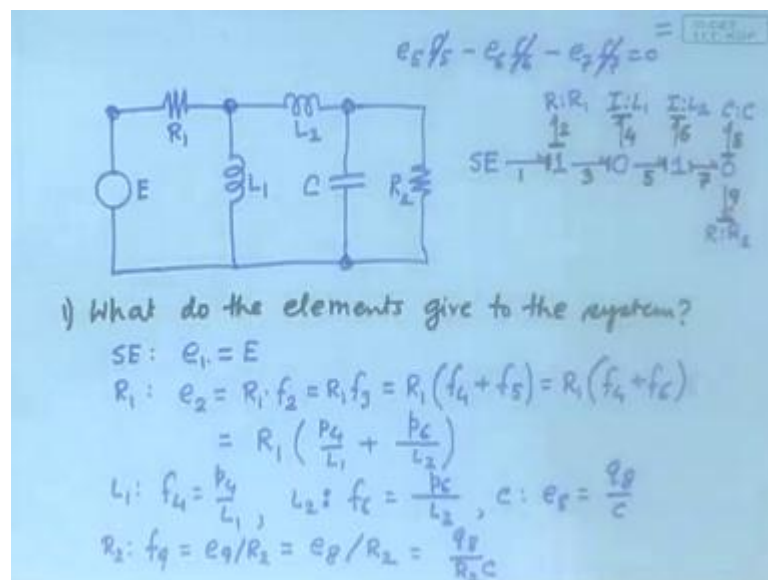 e₅f₅ - e₆f₆ - e₇f₇ = 0
R:R₁ I:L₁ I:L₂ C:C
2 4 6 8
SE 1 1 3 0 5 1 7 0
9
R:R₂
R₁ L₂
E L₁ C R₂
1) What do the elements give to the system?
SE: e₁ = E
R₁: e₂ = R₁·f₂ = R₁f₃ = R₁(f₄ + f₅) = R₁(f₄ + f₆)
= R₁(p₄/L₁ + p₆/L₂)
L₁: f₄ = p₄/L₁, L₂: f₆ = p₆/L₂, C: e₈ = q₈/C
R₂: f₉ = e₉/R₂ = e₈/R₂ = q₈/R₂C